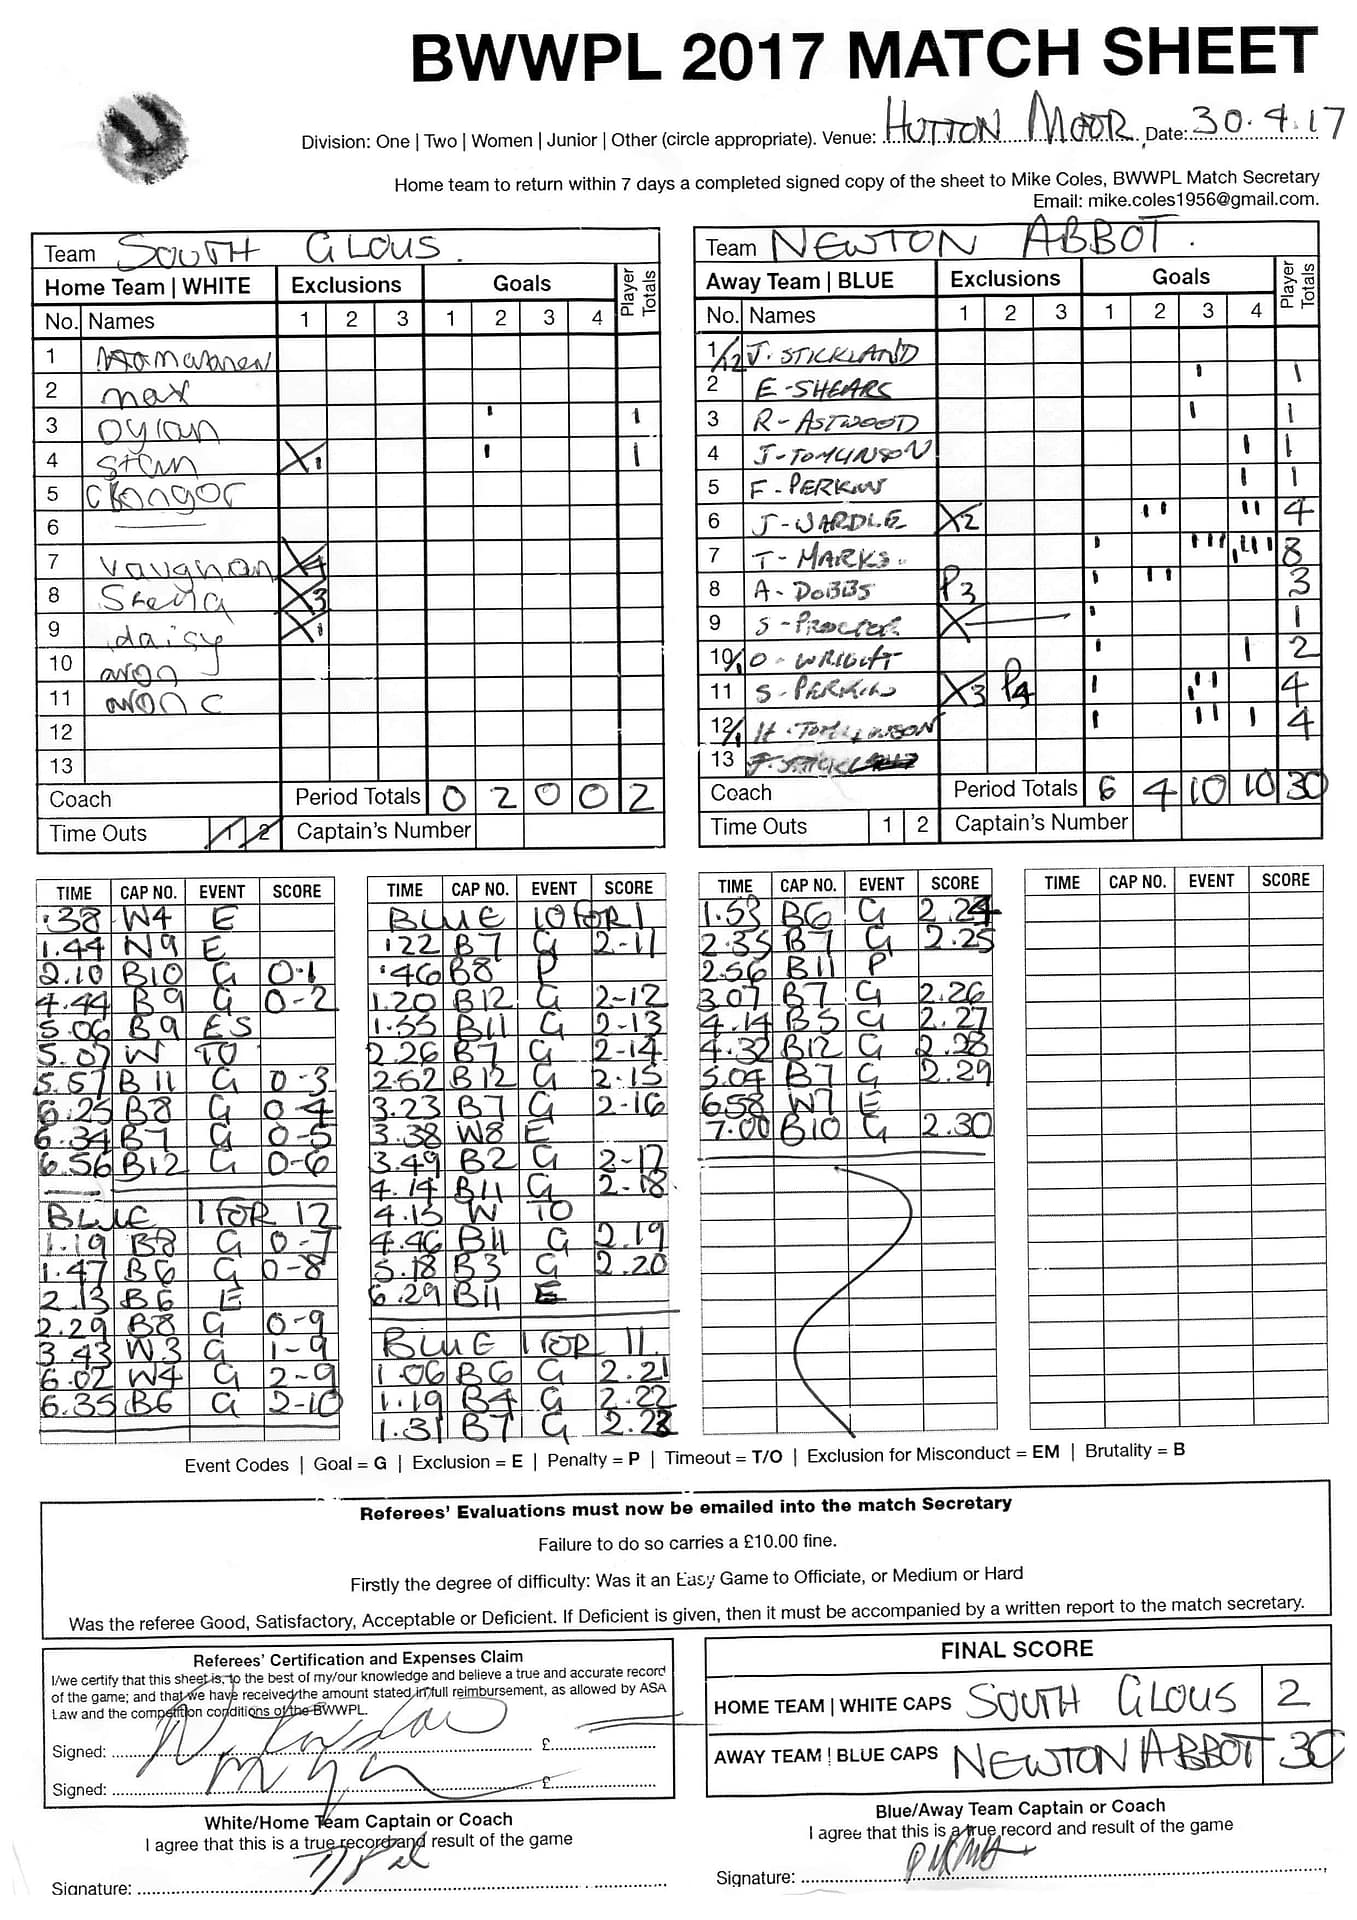 BWWPL 2017 MATCH SHEET
Division: One | Two | Women | Junior | Other (circle appropriate). Venue: HUTTON MOOR Date: 30.4.17
Home team to return within 7 days a completed signed copy of the sheet to Mike Coles, BWWPL Match Secretary
Email: mike.coles1956@gmail.com.
Team SOUTH GLOUS.
Home Team | WHITE Exclusions Goals Player Totals
No. Names 1 2 3 1 2 3 4
1
2 max
3 Dylan ı 1
4 X1 ı 1
5
6
7 Vaughan X4
8 X3
9 daisy X1
10 aron
11 aron c
12
13
Coach Period Totals 0 2 0 0 2
Time Outs 1 2 Captain's Number
Team NEWTON ABBOT.
Away Team | BLUE Exclusions Goals Player Totals
No. Names 1 2 3 1 2 3 4
1/12 J. STICKLAND
2 E-SHEARS ı 1
3 R-ASTWOOD ı 1
4 J-TOMLINSON ı 1
5 F-PERKINS ı 1
6 J-WARDLE X2 ıı ıı 4
7 T-MARKS ı ııı ıııı 8
8 A-DOBBS P3 ı ıı 3
9 S-PROCTOR X ı 1
10 O-WRIGHT ı ı 2
11 S-PERKINS X3 P4 ı ııı 4
12/1 H-TOMLINSON ı ıı ı 4
13
Coach Period Totals 6 4 10 10 30
Time Outs 1 2 Captain's Number
TIME CAP NO. EVENT SCORE
:38 W4 E
1.44 N9 E
2.10 B10 G 0-1
4.44 B9 G 0-2
5.06 B9 ES
5.07 W TO
5.57 B11 G 0-3
6.25 B8 G 0-4
6.34 B7 G 0-5
6.56 B12 G 0-6
BLUE 1 FOR 12
1.19 B8 G 0-7
1.47 B6 G 0-8
2.13 B6 E
2.29 B8 G 0-9
3.43 W3 G 1-9
6.02 W4 G 2-9
6.35 B6 G 2-10
TIME CAP NO. EVENT SCORE
BLUE 10 FOR 1
:22 B7 G 2-11
:46 B8 P
1.20 B12 G 2-12
1.55 B11 G 2-13
2.26 B7 G 2-14
2.52 B12 G 2-15
3.23 B7 G 2-16
3.38 W8 E
3.49 B2 G 2-17
4.14 B11 G 2-18
4.15 W TO
4.46 B11 G 2.19
5.18 B3 G 2.20
6.29 B11 E
BLUE 1 FOR 11
1.06 B6 G 2.21
1.19 B4 G 2.22
1.31 B7 G 2.23
TIME CAP NO. EVENT SCORE
1.53 B6 G 2.24
2.35 B7 G 2.25
2.56 B11 P
3.07 B7 G 2.26
4.14 B5 G 2.27
4.32 B12 G 2.28
5.04 B7 G 2.29
6.58 W7 E
7.00 B10 G 2.30
TIME CAP NO. EVENT SCORE
Event Codes | Goal = G | Exclusion = E | Penalty = P | Timeout = T/O | Exclusion for Misconduct = EM | Brutality = B
Referees' Evaluations must now be emailed into the match Secretary
Failure to do so carries a £10.00 fine.
Firstly the degree of difficulty: Was it an Easy Game to Officiate, or Medium or Hard
Was the referee Good, Satisfactory, Acceptable or Deficient. If Deficient is given, then it must be accompanied by a written report to the match secretary.
Referees' Certification and Expenses Claim
I/we certify that this sheet is, to the best of my/our knowledge and believe a true and accurate record
of the game; and that we have received the amount stated in full reimbursement, as allowed by ASA
Law and the competition conditions of the BWWPL.
Signed: £
Signed: £
White/Home Team Captain or Coach
I agree that this is a true record and result of the game
Signature:
FINAL SCORE
HOME TEAM | WHITE CAPS SOUTH GLOUS 2
AWAY TEAM | BLUE CAPS NEWTON ABBOT 30
Blue/Away Team Captain or Coach
I agree that this is a true record and result of the game
Signature: